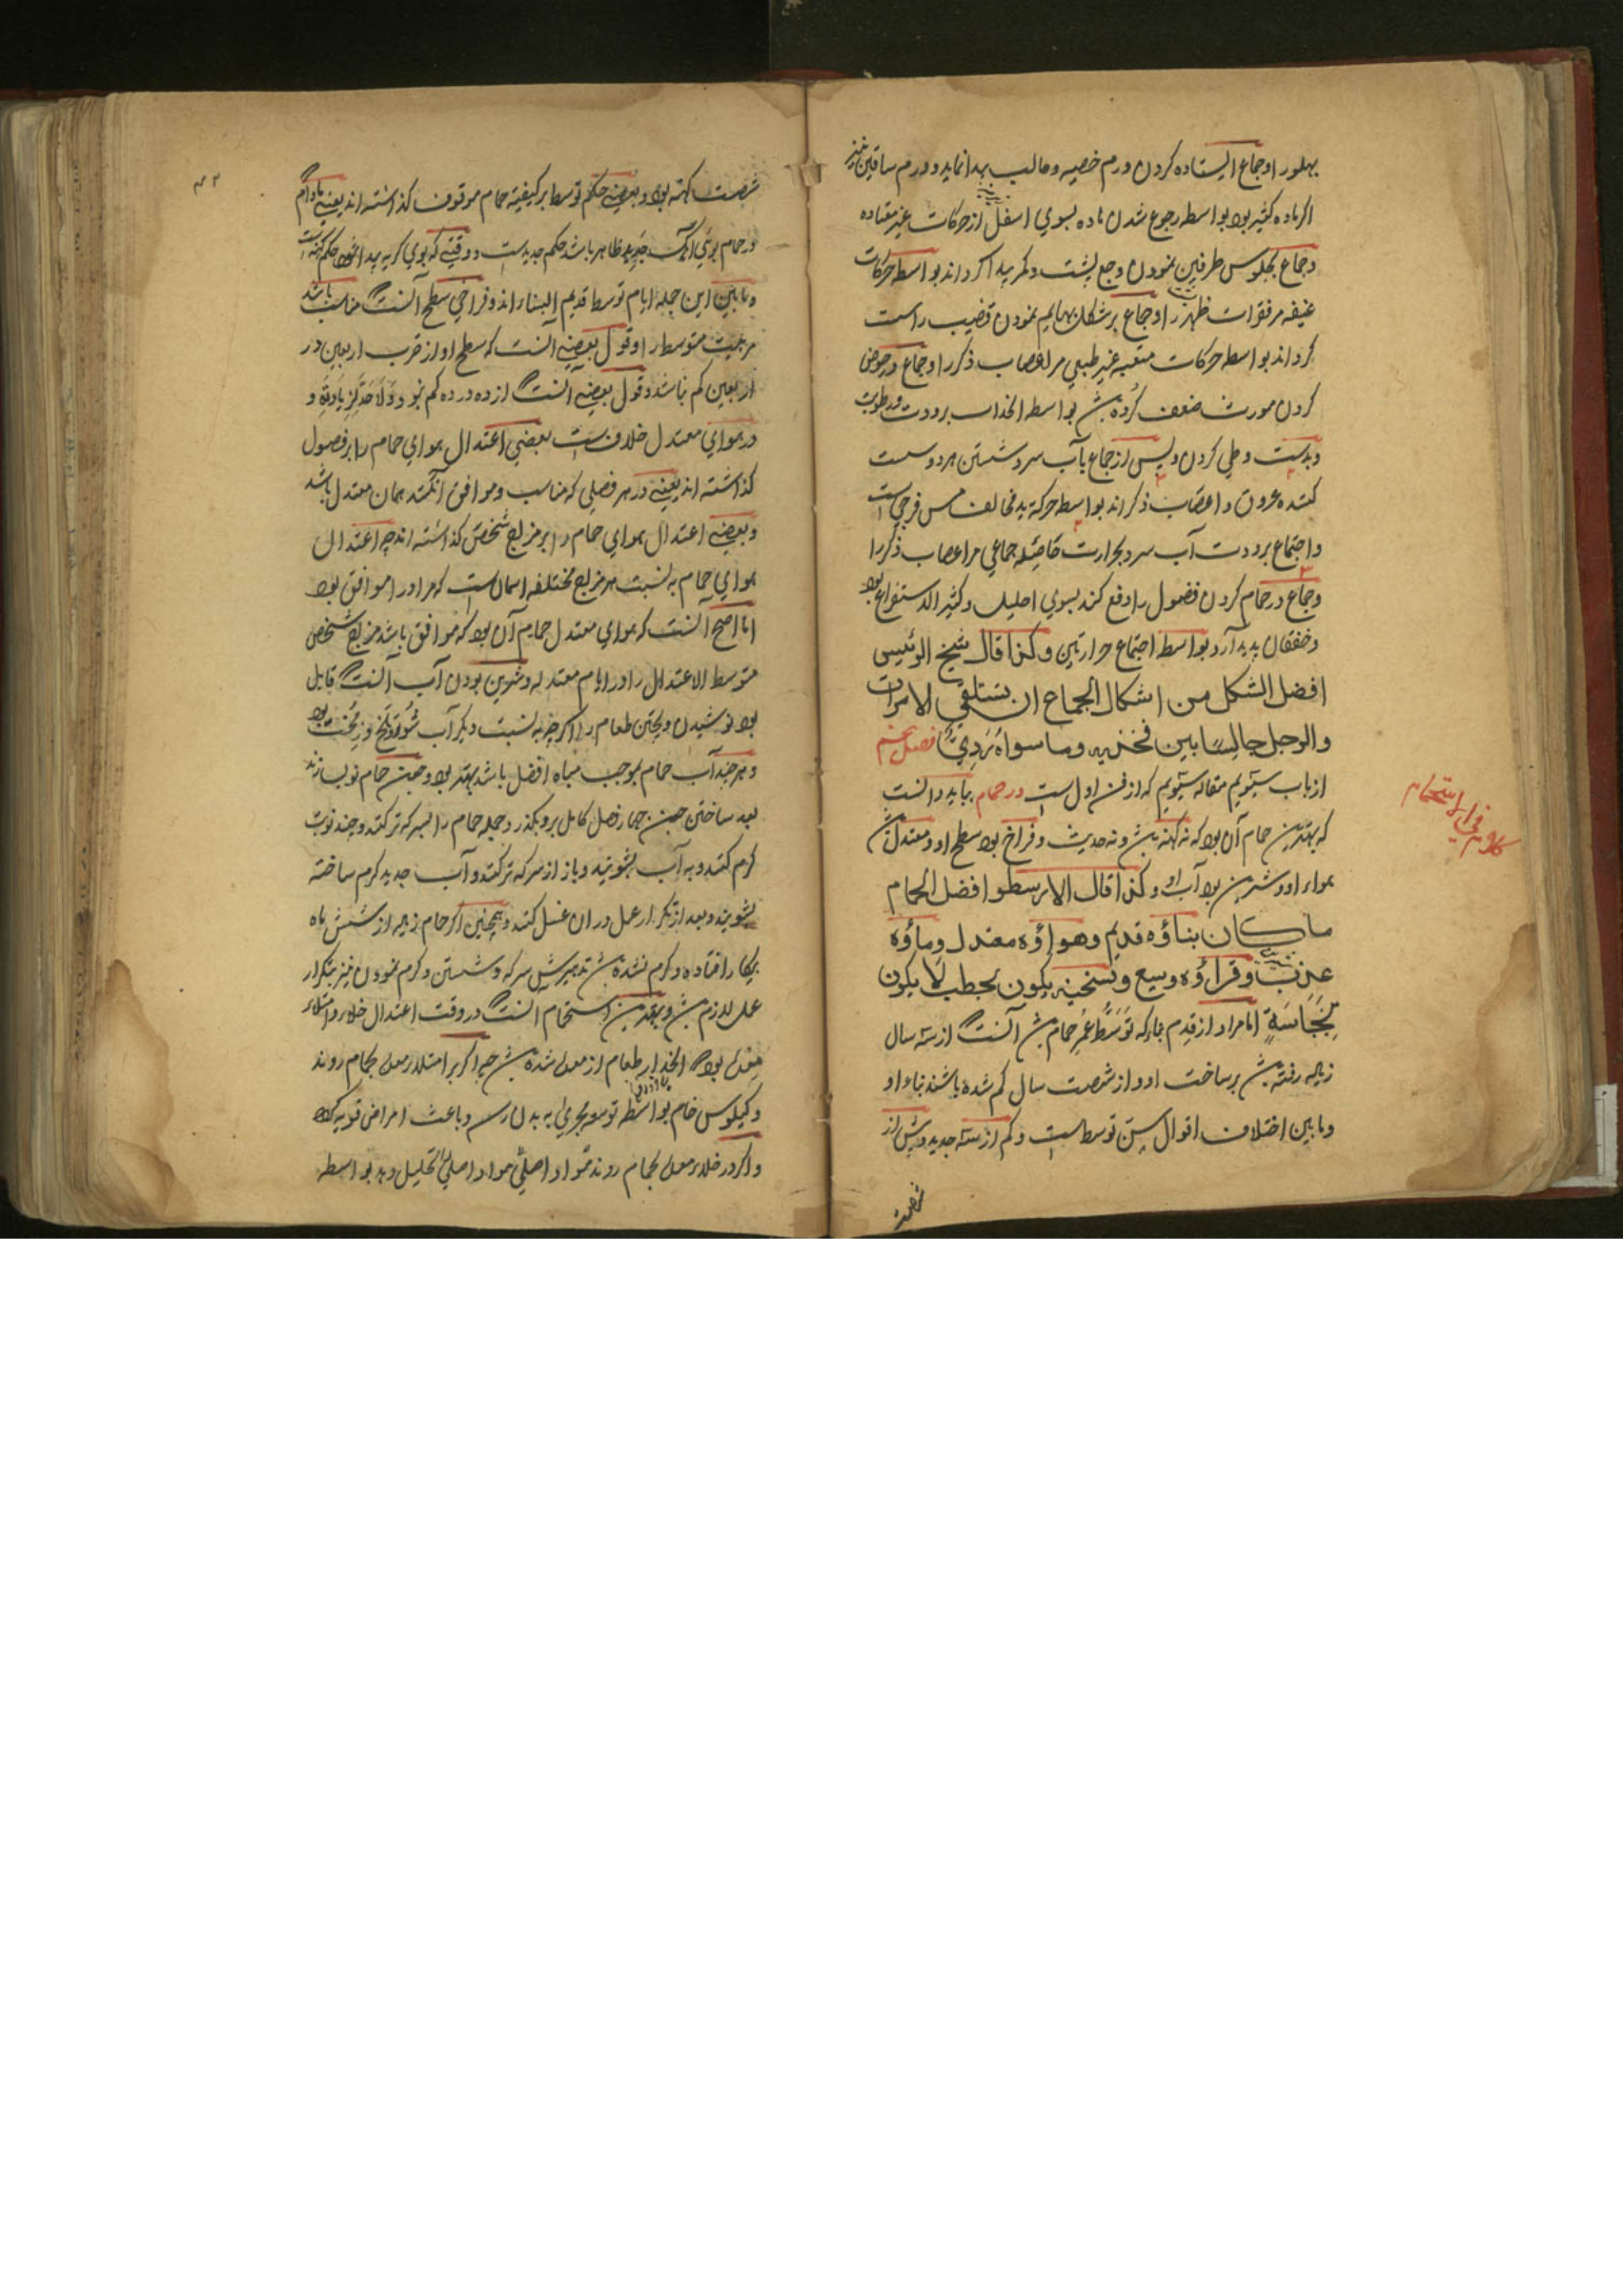 بهلو را و جماع ایستاده کردن ورم خصیه و مالب پیدا نماید و ورم ساقین نیز
اکر ماده کثیر بود بواسطه رجوع شدن ماده بسوی اسفل از حرکات غیر معتاده
و جماع بجلوس طرفین نمودن وجع پشت و کمر پیدا کرداند بواسطه حرکات
عنیفه مر فقرات ظهر را و جماع بر شکل بهایم نمودن قضیب راست
کرداند بواسطه حرکات متعبه غیر طبعی مر اعصاب ذکر را و جماع در حوض
کردن مورث ضعف کرده بواسطه انجذاب برودت و رطوبت
و بدست وطی کردن و پس از جماع بآب سرد شستن هر دو سست
کننده عروق و اعصاب ذکر اند بواسطه حرکة ید مخالف مس فرجی است
و اجتماع برودت آب سرد بحرارت جماعی مر اعصاب ذکر را
و جماع در حمام کردن فضول را دفع کند بسوی احلیل و کثیر الاستفراغ بود
و خفقان پدید آرد بواسطه اجتماع حرارتین و کذا قال شیخ الرئیس
افضل الشکل من اشکال الجماع ان تستلقی الامرات
والرجل جالسًا بین فخذیه وما سواه رَدِیٌ فصل پنجم
از باب سیویم مقاله سیویم که از فن اول است در حمام بباید دانست
که بهترین حمام آن بود که نه کهنه و نه حدیث و فراخ بود سطح او و معتدل
هواء او و شیرین بود آب او و کذا قال الارسطو افضل الحمام
ما کان بناؤه قدیم وهواؤه معتدل وماؤه
عذب و قراؤه وسیع و تسخینه یکون بحطب لا یکون
بِنَجَاسَةٍ اما مراد از قدم بناء که تَوَسُّط عُمرِ حمام آنست که از سته سال
زیاده رفته بر ساخت او و از شصت سال کم شده باشد بناء او
و ما بین اختلاف اقوال سن توسط است و کم از سته جدید و بیش از
شصت
کلام فی الاستحمام
شصت کهنه بود و بعضی حکم توسط بر کیفیته حمام موقوف کذاشته اند یعنی مادام
در حمام بوی آهک جدید ظاهر باشد حکم جدید است و وقتی که بوی کریه پیدا شود حکم کهنه است
و ما بین این جمله ایام توسط قدیم البناء اند و فراخی سطح آنست که مناسب باشد
مر هیئت متوسط را و قول بعضی آنست که سطح او از قرب اربعین در
اربعین کم نباشد و قول بعضی آنست که از ده در ده کم نبود و لاحد لزیادته و
در هوای معتدل خلاف است بعضی اعتدال هوای حمام را بر فصول
کذاشته اند یعنی در هر فصلی که مناسب و موافق آنکند همان معتدل باشد
و بعضی اعتدال هوای حمام را بر مزاج شخص کذاشته اند چه اعتدال
هوای حمام به نسبت هر مزاج مختلفه همان است که مر او را موافق بود
اما اصح آنست که هوای معتدل حمام آن بود که موافق باشد مزاج شخص
متوسط الاعتدال را در ایام معتدله و شیرین بودن آب آنست که قابل
بود نوشیدن و پختن طعام را اکر چه به نسبت دیکر آب شور و تلخ و زمخت بود
و هر چند آب حمام بموجب میاه افضل باشد بهتر بود و چون حمام نو سازند
بعد ساختن چون چهار فصل کامل برو بکذرد جمله حمام را بسرکه تر کنند و چند نوبت
کرم کنند و به آب بشویند و باز از سرکه تر کنند و آب جدید کرم ساخته
بشویند و بعد از تکرار عمل در ان غسل کنند و همچنین اکر حمام زیاده از شش ماه
بیکار افتاده و کرم نشده تدبیرش سرکه و شستن و کرم نمودن نیز بتکرار
عمل لازم و بهترین استحمام آنست که در وقت اعتدال خلاء و امتلاء
معده بود که انحدار طعام از معده شده چه اکر بر امتلاء معده بحمام روند
و کیلوس خام بواسطه توسع مجری به بدن رسد و باعث امراض قویه کردد
و اکر در خلاء معده بحمام روند مواد اصلی تحلیل دهد بواسطه